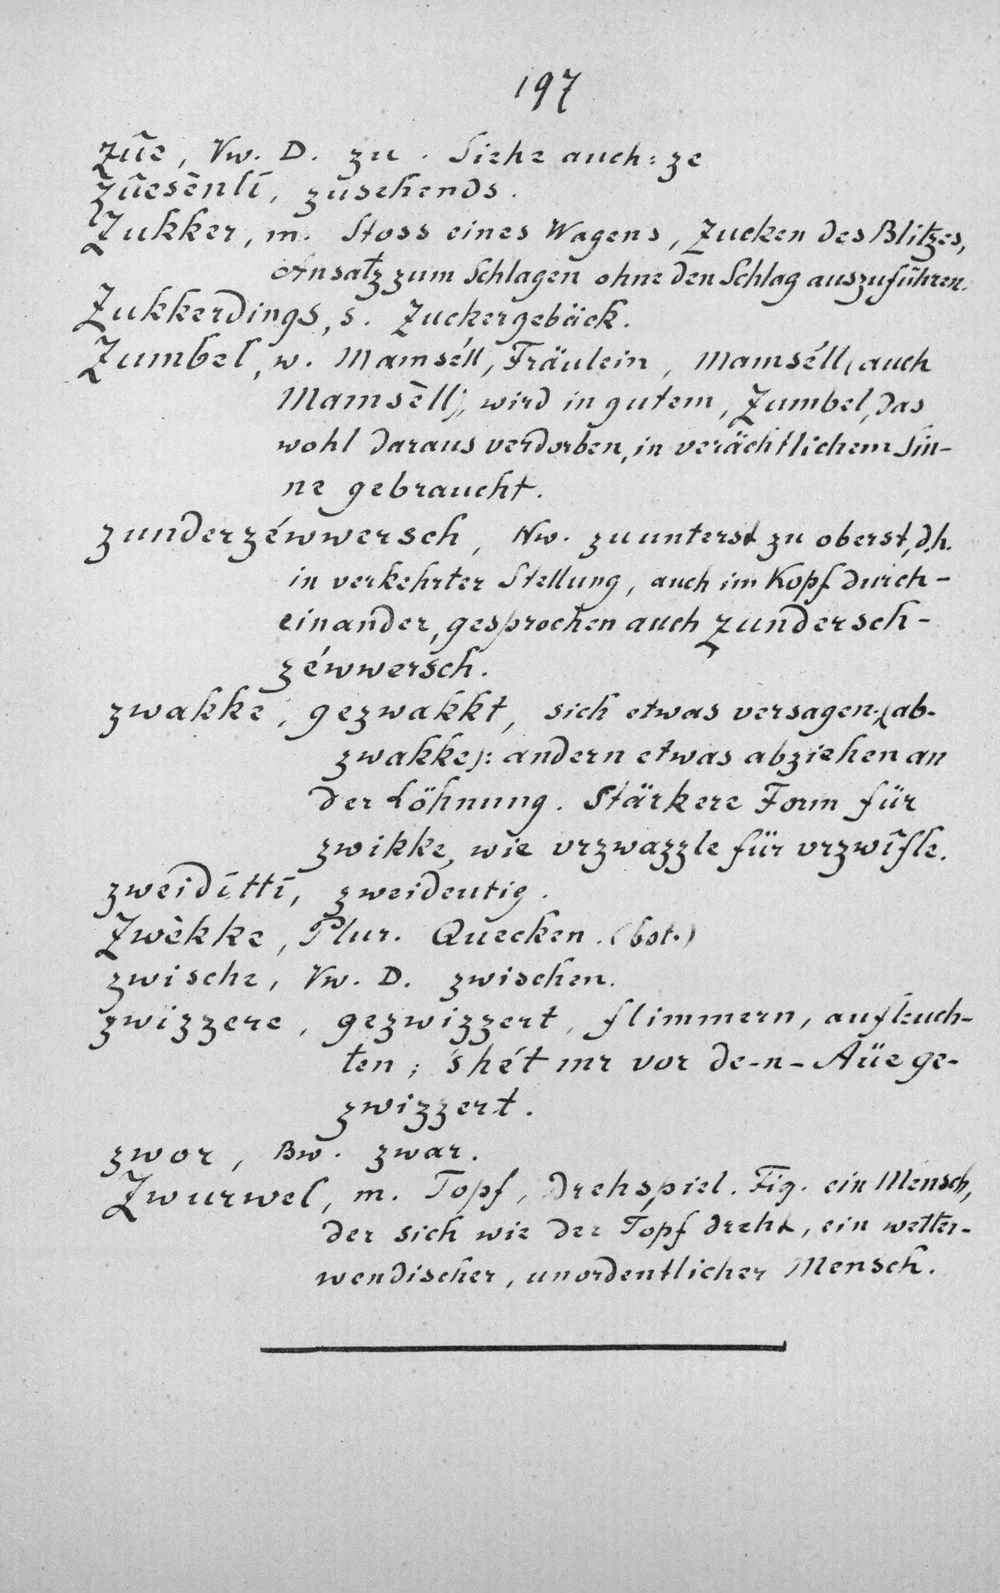 197
zûe, Vw. D. zu. Siehe auch: ze
zûesènlī, zusehends.
Zukker, m. Stoss eines Wagens, Zucken des Blitzes,
Ansatz zum Schlagen ohne den Schlag auszuführen.
Zukkerdings, s. Zuckergebäck.
Zumbel, w. Mamséll, Fräulein, Mamséll (auch
Mamsèll), wird in gutem, Zumbel, das
wohl daraus verdorben, in verächtlichem Sin-
ne gebraucht.
zunderzéwwersch, Nw. zuunterst zu oberst, d.h.
in verkehrter Stellung, auch im Kopf durch-
einander, gesprochen auch zundersch-
zéwwersch.
zwakke, gezwakkt, sich etwas versagen; (ab-
zwakke): andern etwas abziehen an
der Löhnung. Stärkere Form für
zwikke, wie vrzwazzle für vrzwîfle.
zweidīttī, zweideutig.
Zwèkke, Plur. Quecken. (bot.)
zwische, Vw. D. zwischen.
zwizzere, gezwizzert, flimmern, aufleuch-
ten; 's hét mr vor de-n-Aüe ge-
zwizzert.
zwor, Bw. zwar.
Zwurwel, m. Topf, Drehspiel. Fig. ein Mensch,
der sich wie der Topf dreht, ein wetter-
wendischer, unordentlicher Mensch.